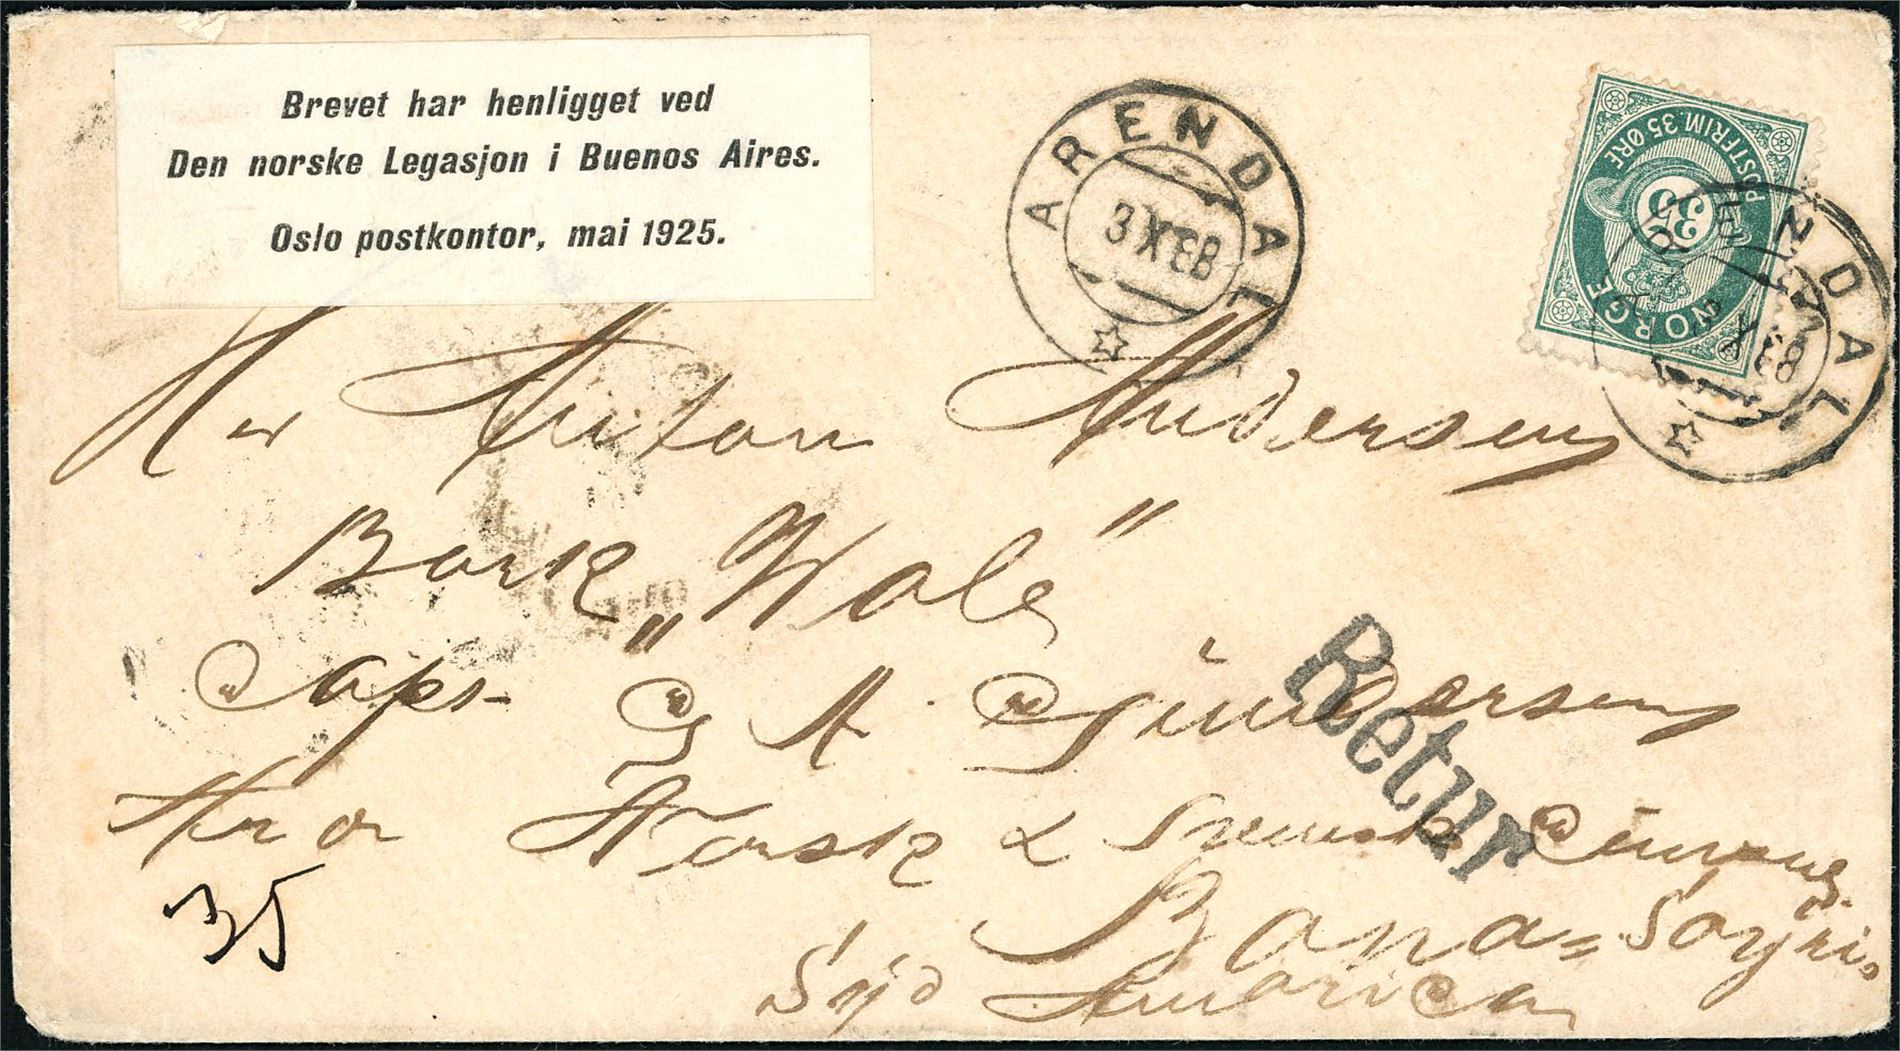 Brevet har henligget ved
Den norske Legasjon i Buenos Aires.
Oslo postkontor, mai 1925.
ARENDAL
3 X 83
POSTFRIM 35 ØRE
35
NORGE
NDAL
X 83
Her Anton Andersen
Bark „Wale"
Capt G A Gundersen
Norsk & Svensk
Retur
35
Syd America